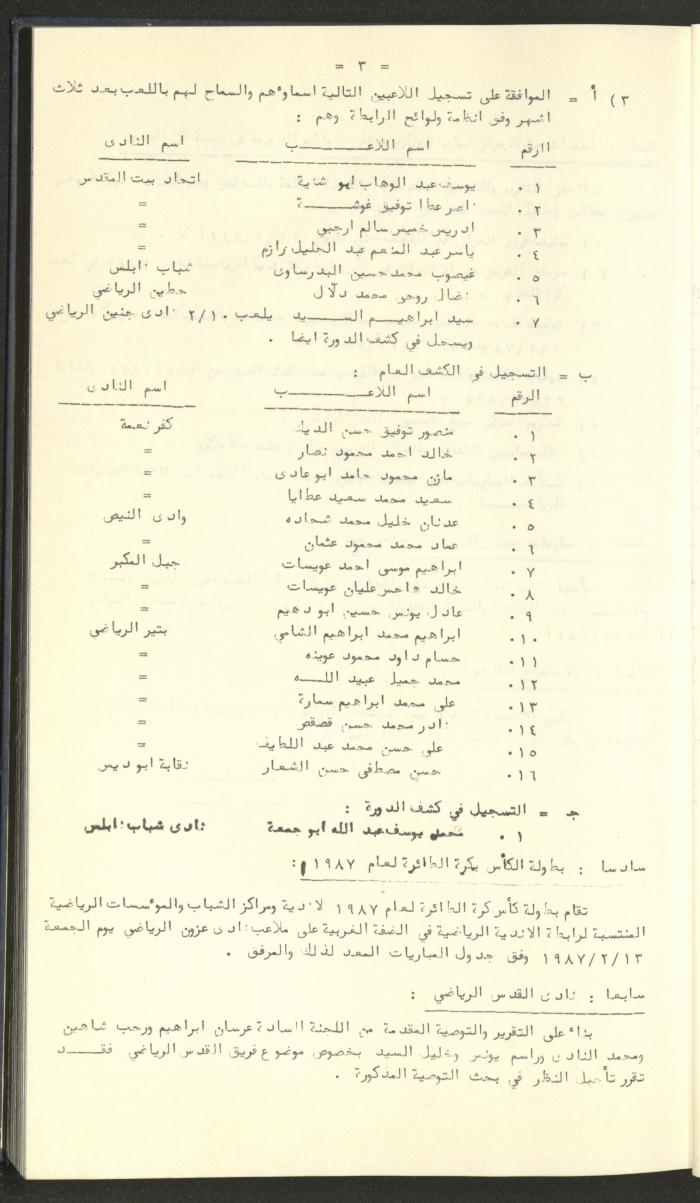 = ٣ =
٣) أ = الموافقة على تسجيل اللاعبين التالية اسماؤهم والسماح لهم باللعب بعد ثلاث
اشهر وفق انظمة ولوائح الرابطة وهم :
الرقم اسم اللاعـــــــب اسم النادى
١ ٠ يوسف عبد الوهاب ابو شنية اتحاد بيت المقدس
٢ ٠ ناصر عطا توفيق غوشــــــة =
٣ ٠ ادريس خميس سالم ارجبي =
٤ ٠ ياسر عبد المنعم عبد الجليل رازم =
٥ ٠ غيصوب محمد حسين البدرساوى شباب نابلس
٦ ٠ نضال روحي محمد دلال حطين الرياضي
٧ ٠ سيد ابراهيــم الســيد يلعب ٢/١٠ نادى جنين الرياضي
ويسجل في كشف الدورة ايضا .
ب = التسجيل في الكشف العام :
الرقم اسم اللاعــــــــب اسم النادى
١ ٠ منصور توفيق حسن الديك كفر نعمة
٢ ٠ خالد احمد محمود نصار =
٣ ٠ مازن محمود حامد ابو عادى =
٤ ٠ سعيد محمد سعيد عطايا =
٥ ٠ عدنان خليل محمد شحاده وادى النيص
٦ ٠ عماد محمد محمود عثمان =
٧ ٠ ابراهيم موسى احمد عويسات جبل المكبر
٨ ٠ خالد عليان عويسات =
٩ ٠ عادل يونس حسين ابو دهيم =
١٠ ٠ ابراهيم محمد ابراهيم الشامي بتير الرياضي
١١ ٠ حسام داود محمود عوينه =
١٢ ٠ محمد جميل عبيد اللــه =
١٣ ٠ علي محمد ابراهيم سمارة =
١٤ ٠ نادر محمد حسن قصقص =
١٥ ٠ علي حسن محمد عبد اللطيف =
١٦ ٠ حسن مصطفى حسن الشعار نقابة ابو ديس
جـ = التسجيل في كشف الدورة :
١ ٠ محمد يوسف عبد الله ابو جمعة نادى شباب نابلس
سادسا : بطولة الكأس بكرة الطائرة لعام ١٩٨٧ :
تقام بطولة كأس كرة الطائرة لعام ١٩٨٧ لاندية ومراكز الشباب والمؤسسات الرياضية
المنتسبة لرابطة الاندية الرياضية في الضفة الغربية على ملاعب نادى عزون الرياضي يوم الجمعة
١٩٨٧/٢/١٣ وفق جدول المباريات المعد لذلك والمرفق .
سابعا : نادى القدس الرياضي :
بناء على التقرير والتوصية المقدمة من اللجنة السادة عرسان ابراهيم ورجب شاهين
ومحمد النادى وراسم يونس وخليل السيد بخصوص موضوع فريق القدس الرياضي فقــــد
تقرر تأجيل النظر في بحث التوصية المذكورة .